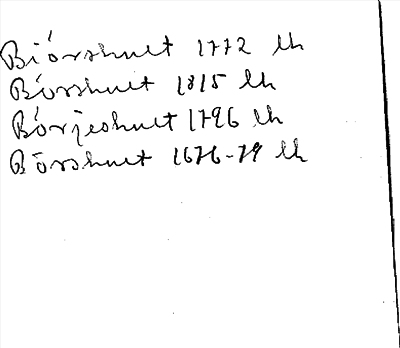 Biörshult 1772 lh
Börshult 1815 lh
Börjeshult 1796 lh
Börshult 1676-79 lh